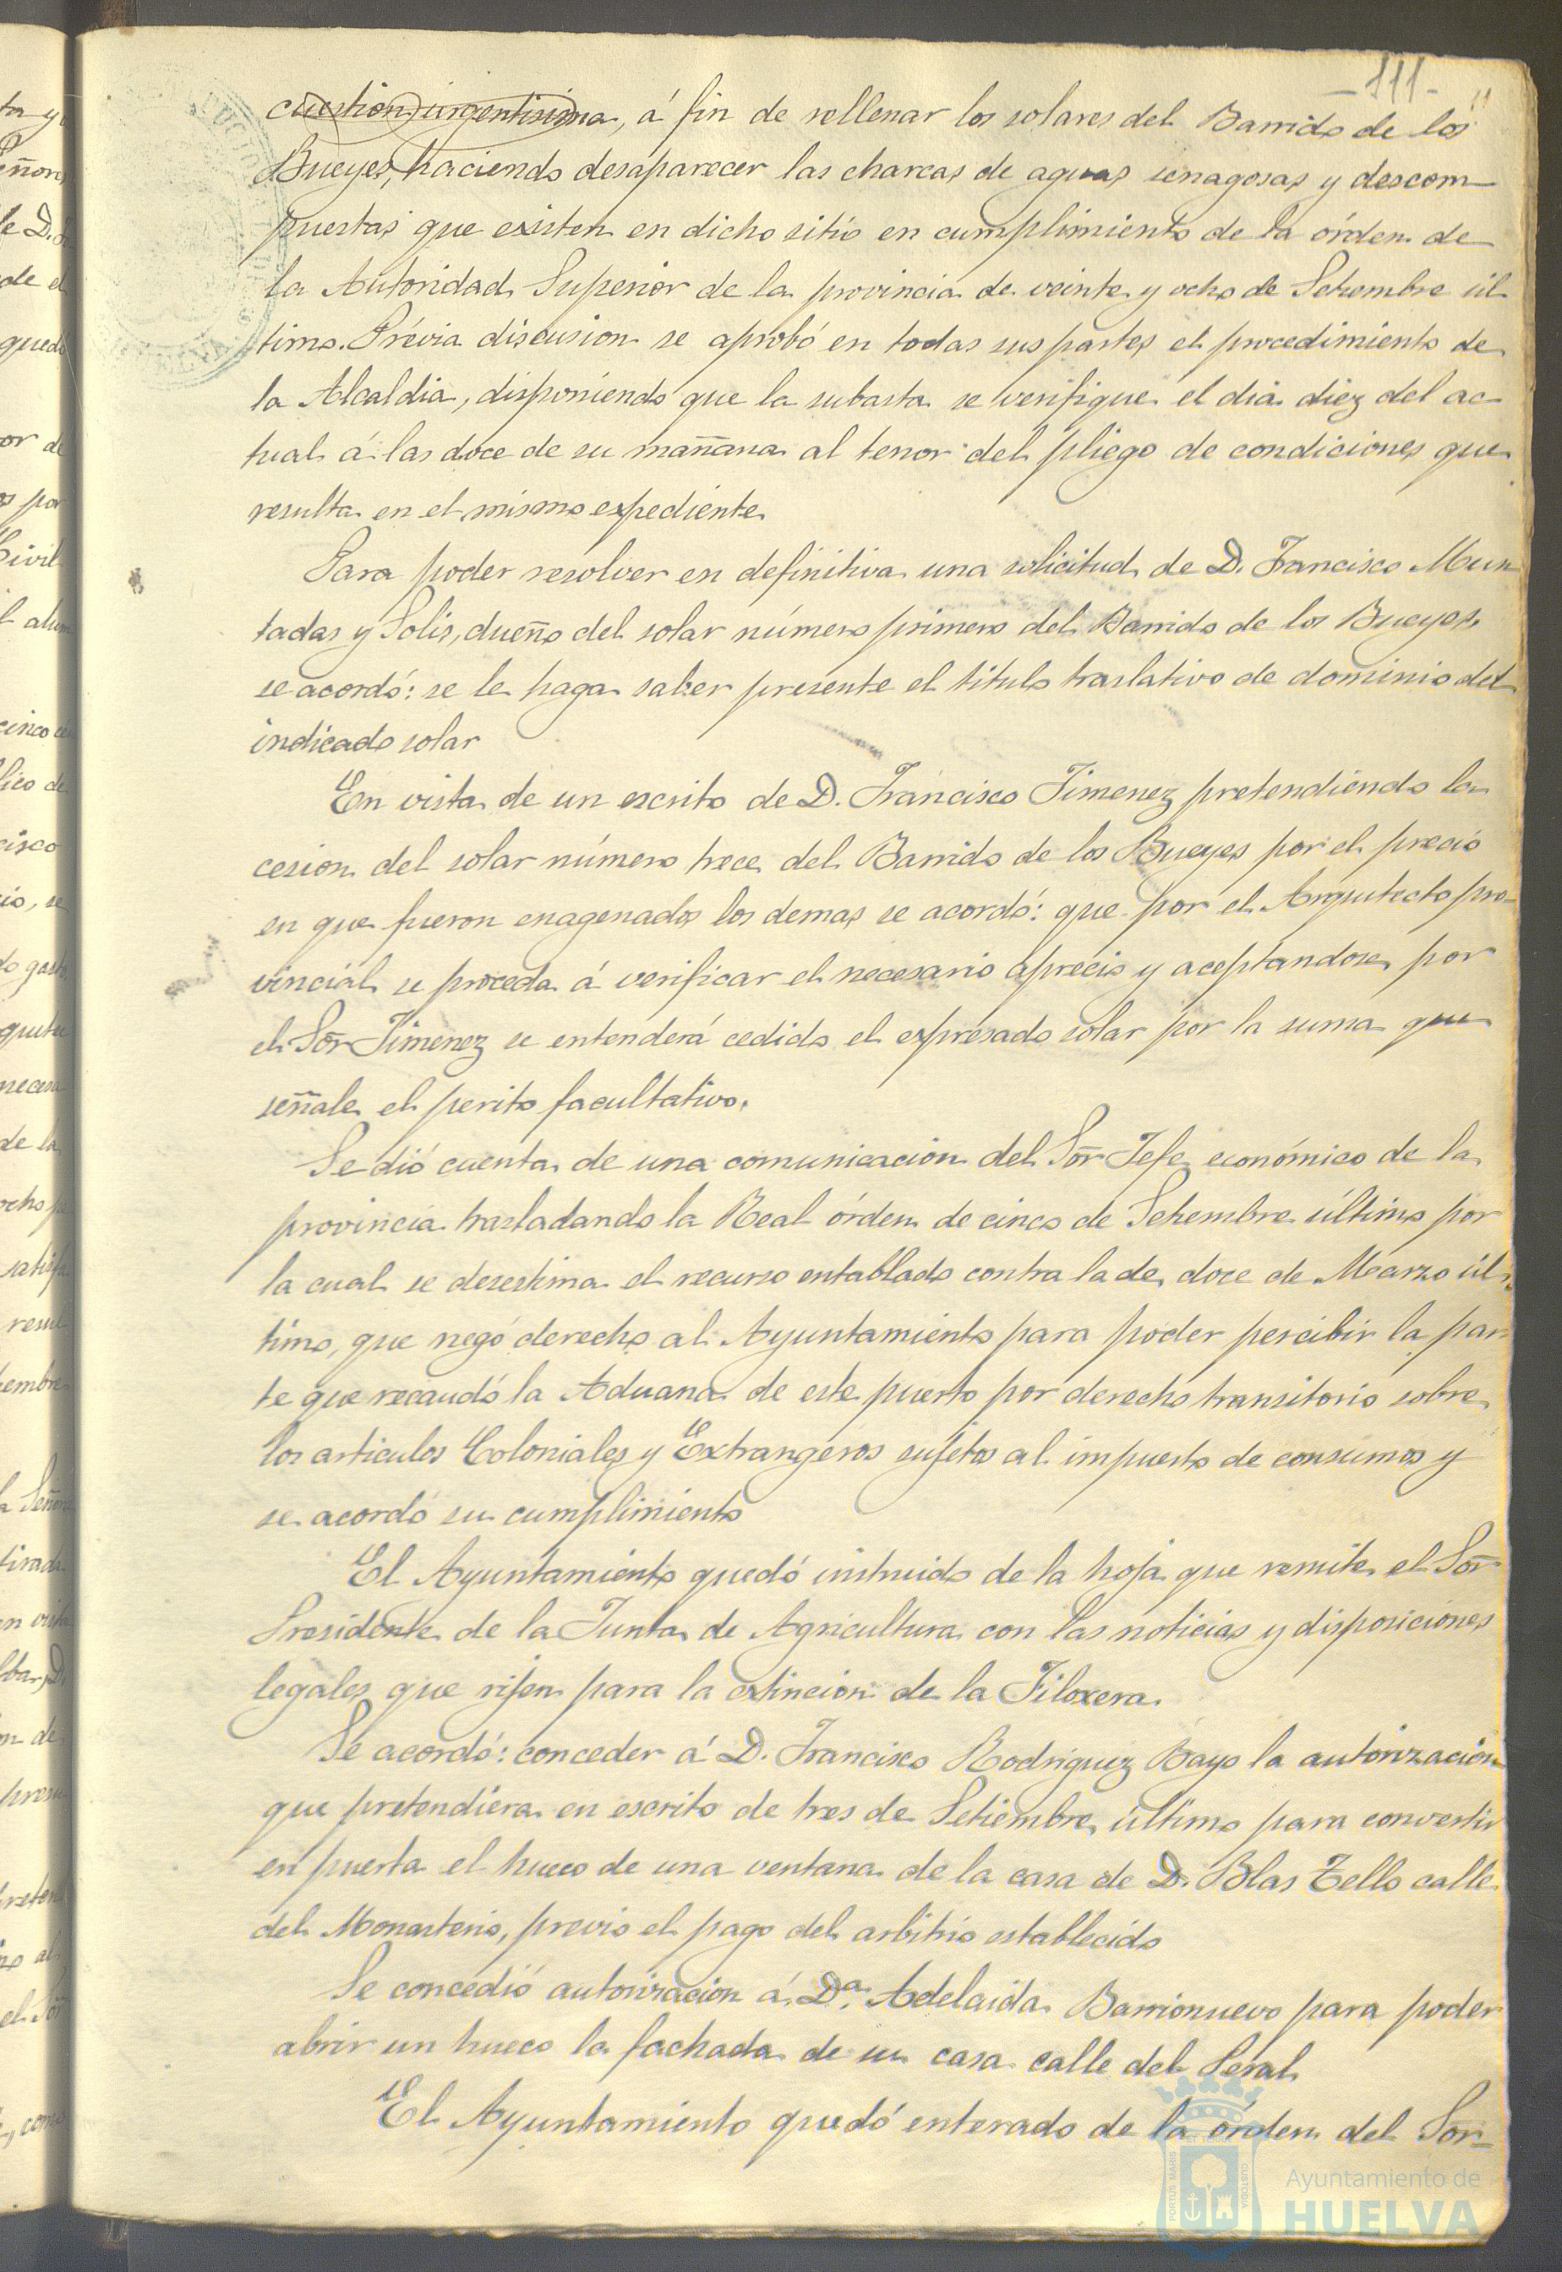 -111-
cuestion urgentisima, á fin de rellenar los solares del Barrido de los
Bueyes, haciendo desaparecer las charcas de aguas senagosas y descom-
puestas que existen en dicho sitio en cumplimiento de la órden de
la Autoridad Superior de la provincia de veinte y ocho de Setiembre úl
timo. Prévia discusion se aprobó en todas sus partes el procedimiento de
la Alcaldia, disponiendo que la subasta se verifique el dia diez del ac-
tual á las doce de su mañana al tenor del pliego de condiciones que
resulta en el mismo expediente
Para poder resolver en definitiva una solicitud de D. Francisco Mun
tadas y Solis, dueño del solar número primero del Barrido de los Bueyes,
se acordó: se le haga saber presente el titulo traslativo de dominio del
indicado solar
En vista de un escrito de D. Francisco Jimenez pretendiendo la
cesion del solar número trece del Barrido de los Bueyes por el precio
en que fueron enagenados los demas se acordó: que por el Arquitecto pro-
vincial se proceda á verificar el necesario aprecio y aceptandose por
el Sōr Jimenez se entenderá cedido el expresado solar por la suma que
señale el perito facultativo.
Se dió cuenta de una comunicacion del Sōr Jefe económico de la
provincia trasladando la Real órden de cinco de Setiembre último por
la cual se desestima el recurso entablado contra la de doce de Marzo úl-
timo, que negó derecho al Ayuntamiento para poder percibir la par
te que recaudó la Aduana de este puerto por derecho transitorio sobre
los articulos Coloniales y Extrangeros sujetos al impuesto de consumos y
se acordó su cumplimiento
El Ayuntamiento quedó instruido de la hoja que remite el Sōr
Presidente de la Junta de Agricultura con las noticias y disposiciones
legales que rijen para la extincion de la Filoxera.
Se acordó: conceder á D. Francisco Rodriguez Bayo la autorizacion
que pretendiera en escrito de tres de Setiembre último para convertir
en puerta el hueco de una ventana de la casa de D. Blas Tello calle
del Monasterio, previo el pago del arbitrio establecido
Se concedió autorizacion á Dª. Adelaida Barrionuevo para poder
abrir un hueco la fachada de su casa calle del Peral
El Ayuntamiento quedó enterado de la órden del Sōr-
PORTUS MARIS
CUSTODIA
Ayuntamiento de
HUELVA